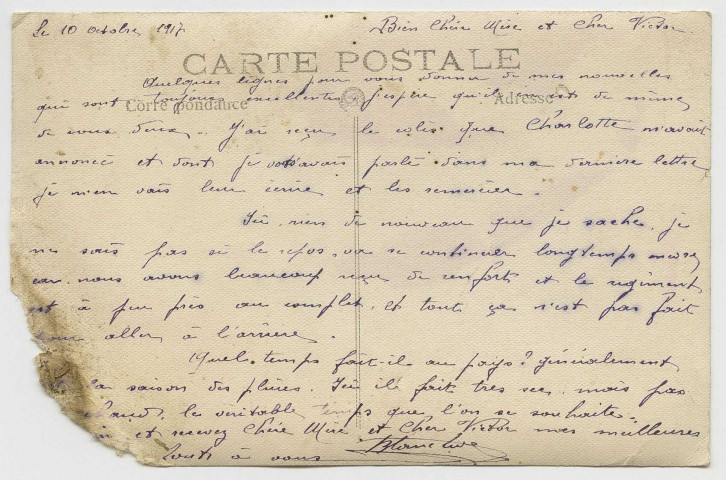 Le 10 octobre 1917 Bien Chère Mère et Cher Victor
CARTE POSTALE
Quelques lignes pour vous donner de mes nouvelles
qui sont toujours excellentes j'espère qu'il en est de même
Correspondance Adresse
de vous deux. J'ai reçu le colis que Charlotte m'avait
annoncé et dont je vous avais parlé dans ma dernière lettre
je m'en vais leur écrire et les remercier.
Ici, rien de nouveau que je sache, je
ne sais pas si le repos va se continuer longtemps encore
car nous avons beaucoup reçu de renforts et le régiment
est à peu près au complet, et tout ça n'est pas fait
pour aller à l'arrière.
Quel temps fait-il au pays? généralement
la saison des pluies. Ici il fait très sec, mais pas
chaud, le véritable temps que l'on se souhaite.
et recevez Chère Mère et Cher Victor mes meilleures
Tout à vous